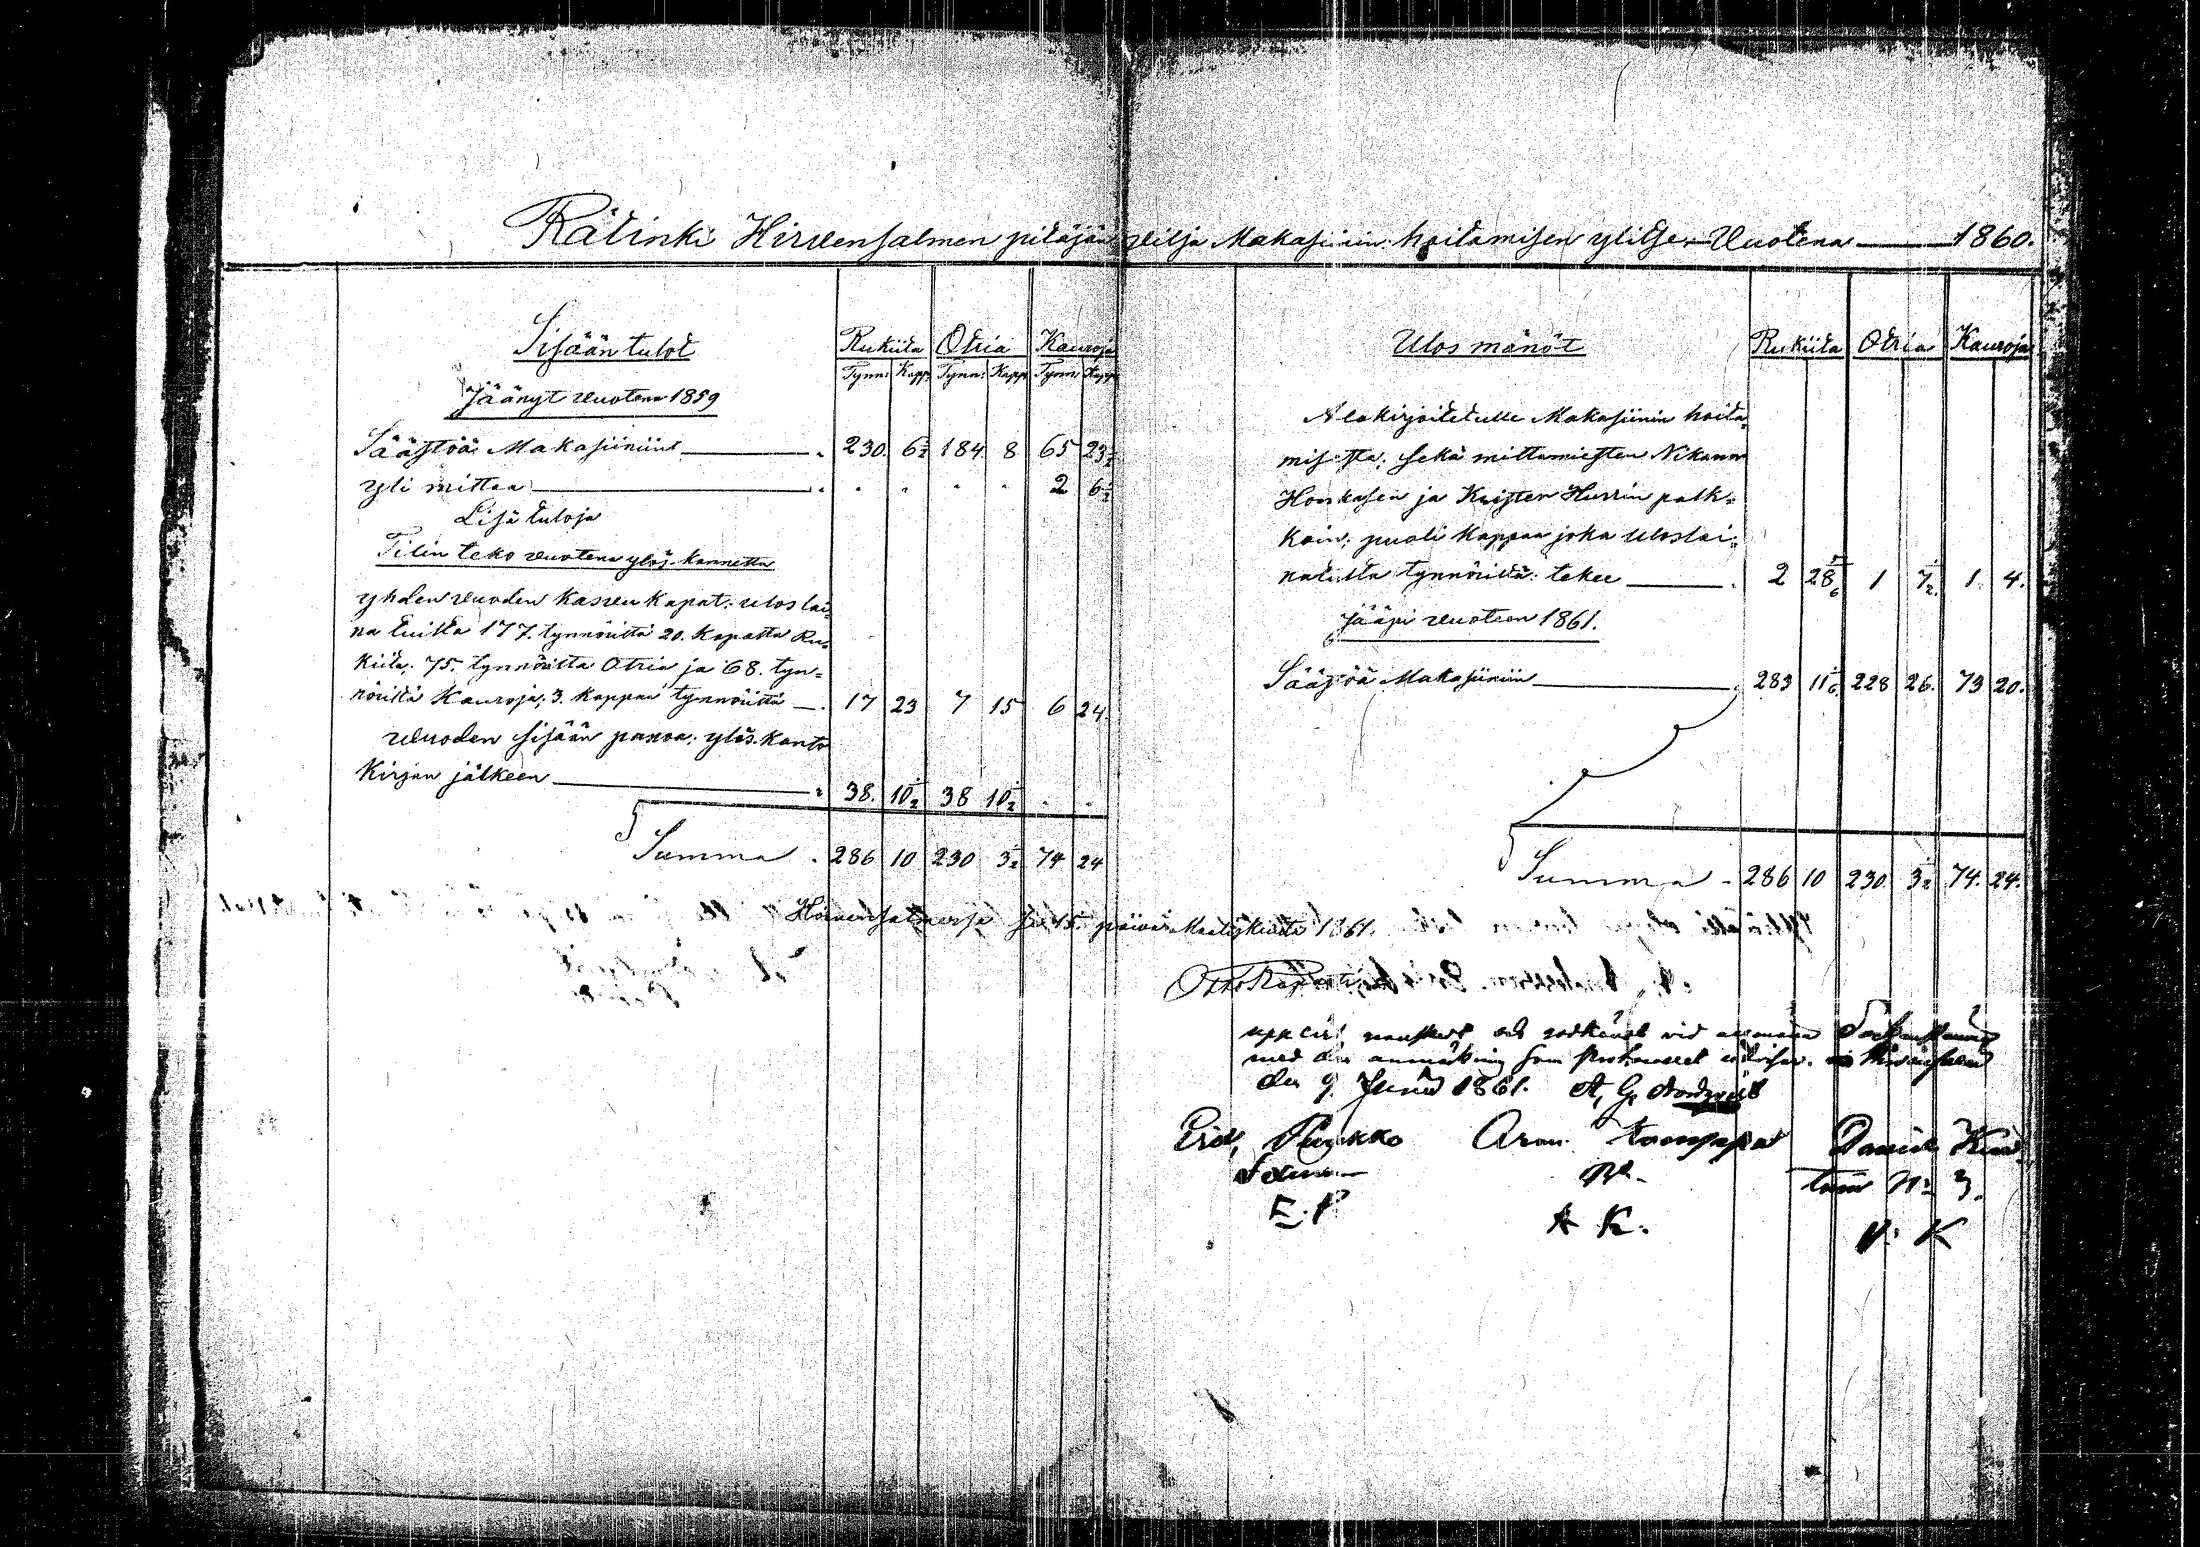 Rätinki Hirvensalmen pitäjän vilja Makasinin hoitamisen ylitse Vuotena 1860.
Sisään tulot Rukiita Otria Kauroja
Tynn: Kapp: Tynn: Kapp: Tynn: Kapp:
Jäänyt vuotena 1859
Säästöä Makasiiniin 230. 6½ 184. 8 65 23½
yli mittaa 2 6½
Lisä tuloja
Tilin teko vuotena ylös kannettu
yhden vuoden kasvu kapat: ulos lai=
na tuista 177. tynnöristä 20. kapasta Ru=
kiita. 75. tynnöristä Otria ja 68. tyn=
nöristä Kauroja; 3. kappaa tynnöristä 17 23 7 15 6 24.
vuoden sisään panoa: ylös kanto
kirjan jälkeen 38. 10½ 38 10½
Summa 286 10 230 3½ 74 24
Ulos mänöt Rukiita Otria Kauroja
Alakirjoitetulle Makasiinin hoita=
misesta; sekä mittamiesten
Honkasen ja Hurrin palk=
koin; puoli kappaa joka uloslai=
natusta tynnöristä tekee 2 28 1 7½ 1. 4.
Jääpi vuoteen 1861.
Säästöä Makasiiniin 283 11 228 26. 73 20.
Summa 286 10 230. 3½ 74. 24.
Hirvensalmessa 15 päivä 1861.
Otto
och godkändt vid Sockenstämma
med den anmärkning som
den 9 Juni 1861. A. G. Nordqvist
Pukko Aron Daniel
E. P. A K. K